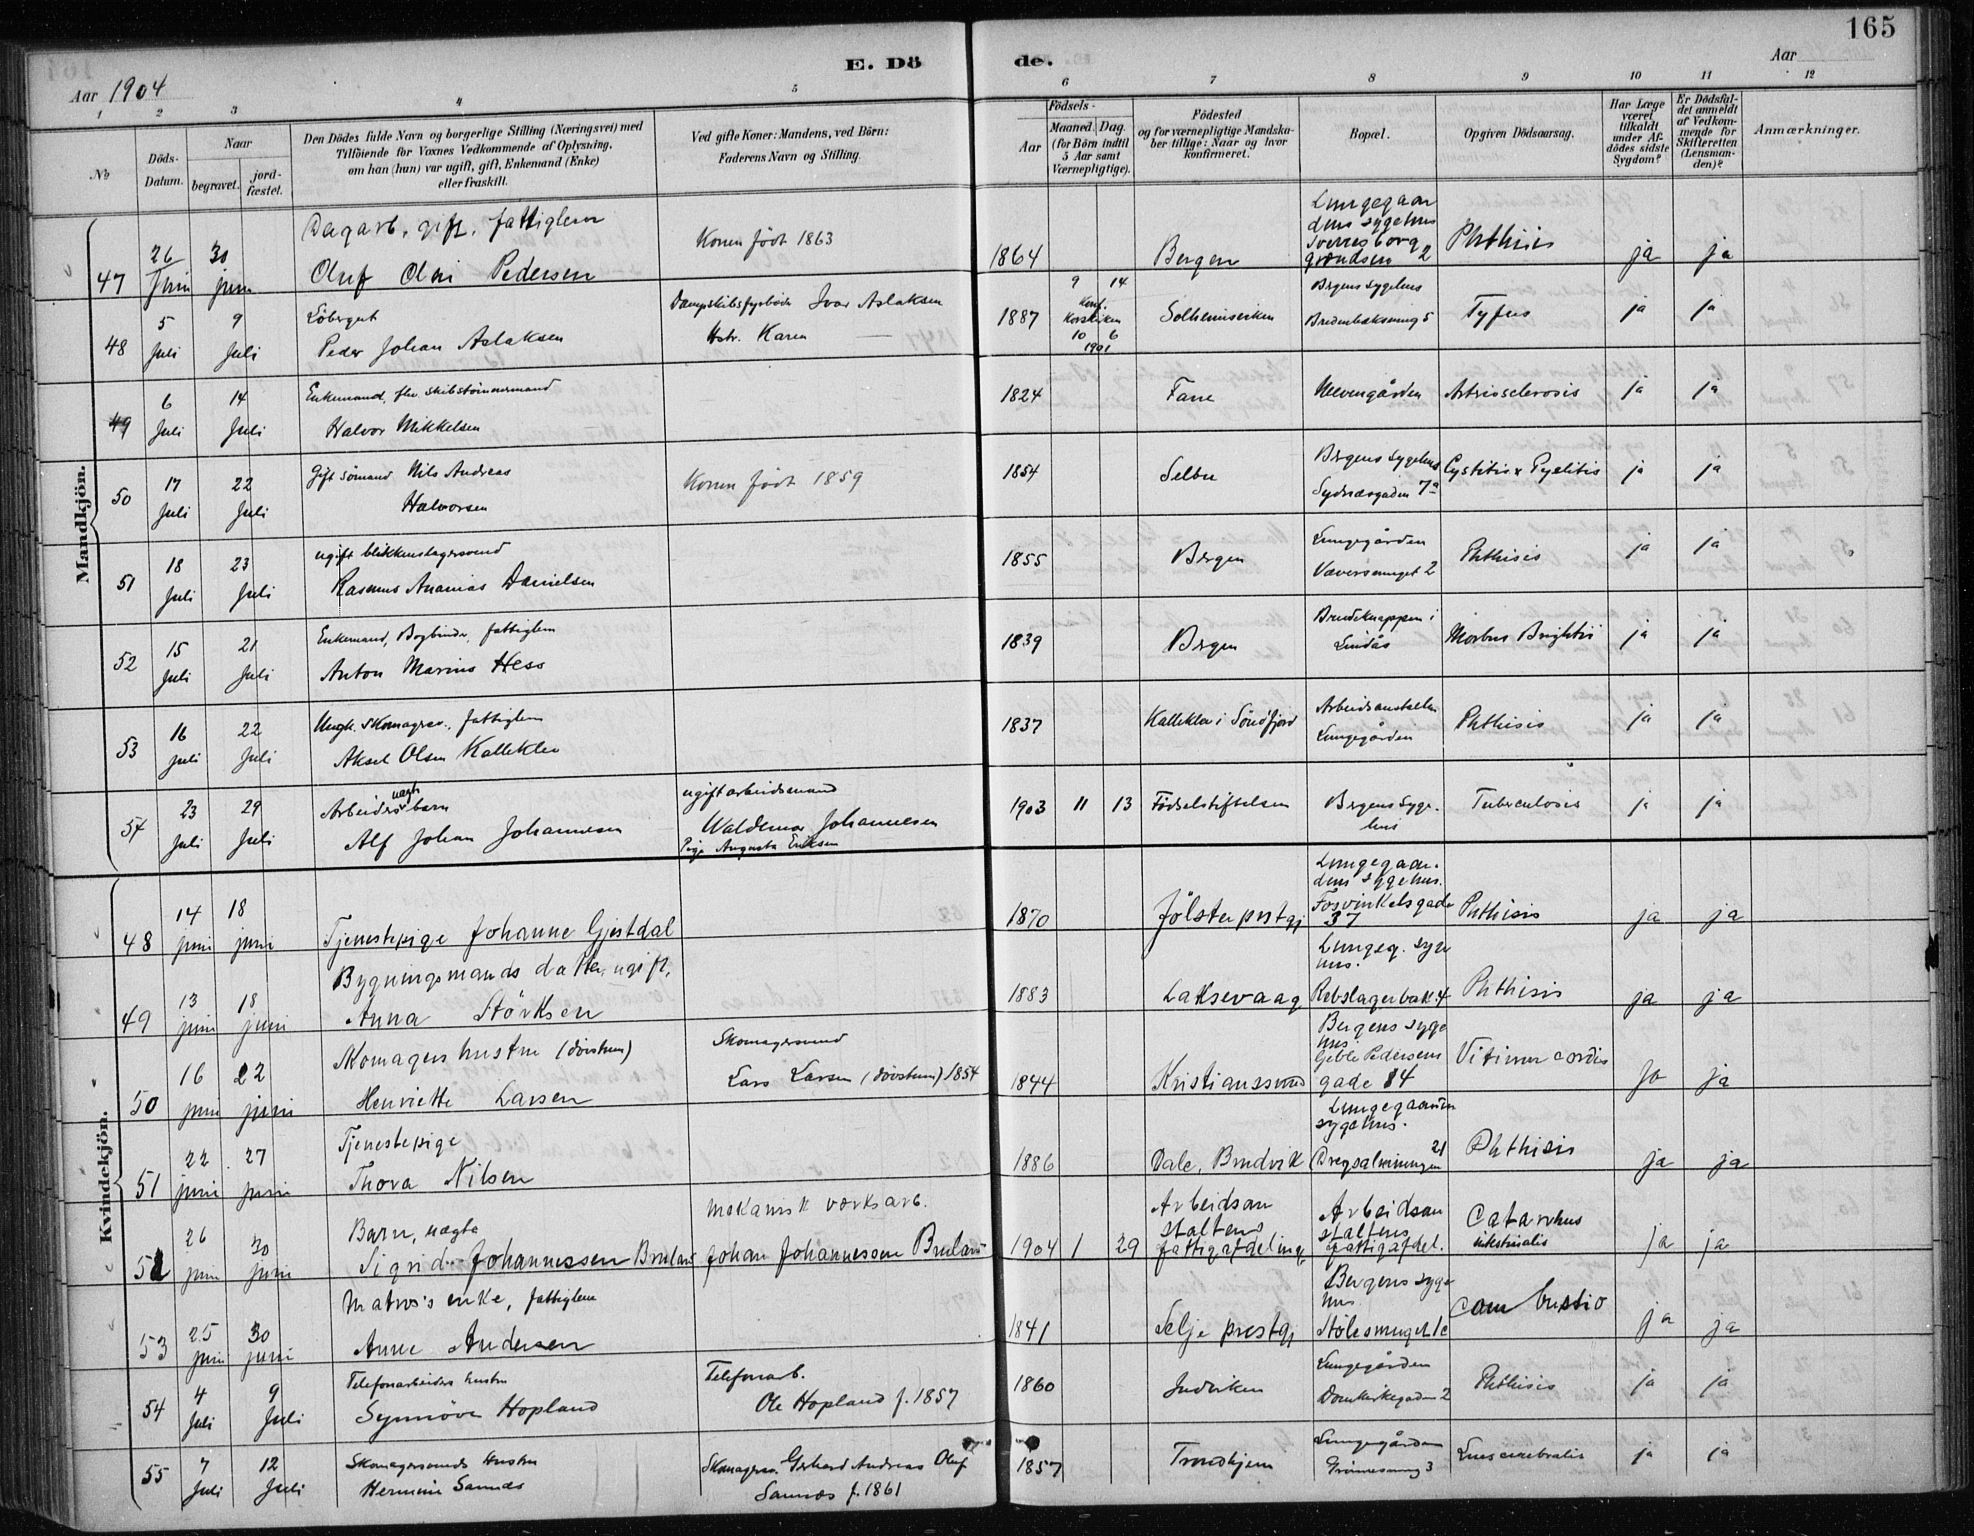 165
E. Dö de.
Aar 1904
Aar
1 2 3 4 5 6 7 8 9 10 11 12
No
Döds-Datum.
Naar
begravet. jord-fæstet.
Den Dödes fulde Navn og borgerlige Stilling (Næringsvei) med
Tilföiende for Voxnes Vedkommende af Oplysning,
om han (hun) var ugift, gift, Enkemand (Enke)
eller fraskilt.
Ved gifte Koner: Mandens, ved Börn:
Faderens Navn og Stilling.
Födsels-
Aar
Maaned. Dag.
(for Börn indtil
5 Aar samt
Værnepligtige).
Födested
og for værnepligtige Mandska-
ber tillige: Naar og hvor
konfirmeret.
Bopæl.
Opgiven Dödsaarsag.
Har Læge
været
tilkaldt
under Af-
dödes sidste
Sygdom?
Er Dödsfal-
det anmeldt
af Vedkom-
mende for
Skifteretten
(Lensman-
den)?
Anmærkninger.
Mandkjön.
47 26 Juni 30 juni Dagarb. gift. fattiglem
Oluf Olai Pedersen Konen født 1863 1864 Bergen Lungegaar
dens sygehus
Sverresborg
grændsen 2 Phthisis ja ja
48 5 Juli 9 Juli Löbergut
Peder Johan Aslaksen Dampskibsfyrbøder Ivar Aslaksen
Hstr. Karen 1887 9 14
Konf.
Korskirken
10 6
1901 Solheimsviken Bergens Sygehus
Bredenbæksmug 5 Tyfus ja ja
49 6 Juli 14 Juli Enkemand, fhv. skibstømmermand
Halvor Mikkelsen 1824 Fane Meeengården Artriosclerosis ja ja
50 17 Juli 22 Juli Gift sömand Nils Andreas
Halvorsen Konen født 1859 1854 Selbu Bergens Sygehus
Sydnæsgaden 7a Cystitis & Pyelitis ja ja
51 18 Juli 23 Juli ugift blikkenslagersvend
Rasmus Ananias Danielsen 1855 Bergen Lungegården
Væversmuget 2 Phthisis ja ja
52 15 Juli 21 Juli Enkemand, Bogbinder, fattiglem
Anton Marius Hess 1839 Bergen
Lindås Morbus Brightii ja ja
53 16 juli 22 Juli Ungk. skomagersv., fattiglem
Aksel Olsen Kalleklev 1837 Kalleklev i Söndfjord Arbeidsanstalten
Lungegården Phthisis ja ja
54 23 Juli 29 Juli Arbeiders uægte barn
Alf Johan Johannesen ugift arbeidsmand
Waldemar Johannesen
Pige Augusta Eriksen 1903 11 13 Födselstiftelsen Bergens Syge-
hus Tuberculosis ja ja
Kvindekjön.
48 14 juni 18 juni Tjenestepige Johanne Gjestdal 1870 Jölster prstgj Lungegaar-
dens sygehus.
Fosvinkelsgade
37 Phthisis ja ja
49 13 juni 18 juni Bygningsmands datter, ugift,
Anna Störksen 1883 Laksevaag Lungeg. syge
hus.
Rebslagerbak 4 Phthisis ja ja
50 16 juni 22 juni Skomagers hustru (døvstum)
Henriette Larsen Skomagersvend
Lars Larsen (døvstum) 1854 1844 Kristianssund Bergens syge
hus
Geble Pedersens
gade 14 Vitium cordis ja ja
51 22 juni 27 juni Tjenestepige
Thora Nilsen 1886 Dale, Bruvik Lungegaarden
sygehus.
Dregsalmningen 21 Phthisis ja ja
52 26 juni 30 juni Barn, uægte
Sigrid Johannessen Brulan mekanisk værksarb.
Johan Johannessen Brulan 1904 1 29 Arbeidsan
staltens
fattigafdeling Arbeidsan
staltens
fattigafdel. Catarrhus
intestinalis ja ja
53 25 juni 30 juni Matros's enke, fattiglem
Anne Andersen 1841 Selje prestgj Bergens syge
hus
Stölesmuget 1c Combustio ja ja
54 4 Juli 9 Juli Telefonarbeiders hustru
Synnöve Hopland Telefonarb.
Ole Hopland f. 1857 1860 Indviken Lungegården
Domkirkegaden 2 Phthisis ja ja
55 7 Juli 12 Juli Skomagersvends Hustru
Hermine Sannes Skomagersv. Gerhard Andreas Oluf
Sannes f. 1861 1857 Trondhjem Lungegården
Grönnesmug 3 Lues cerebralis ja ja